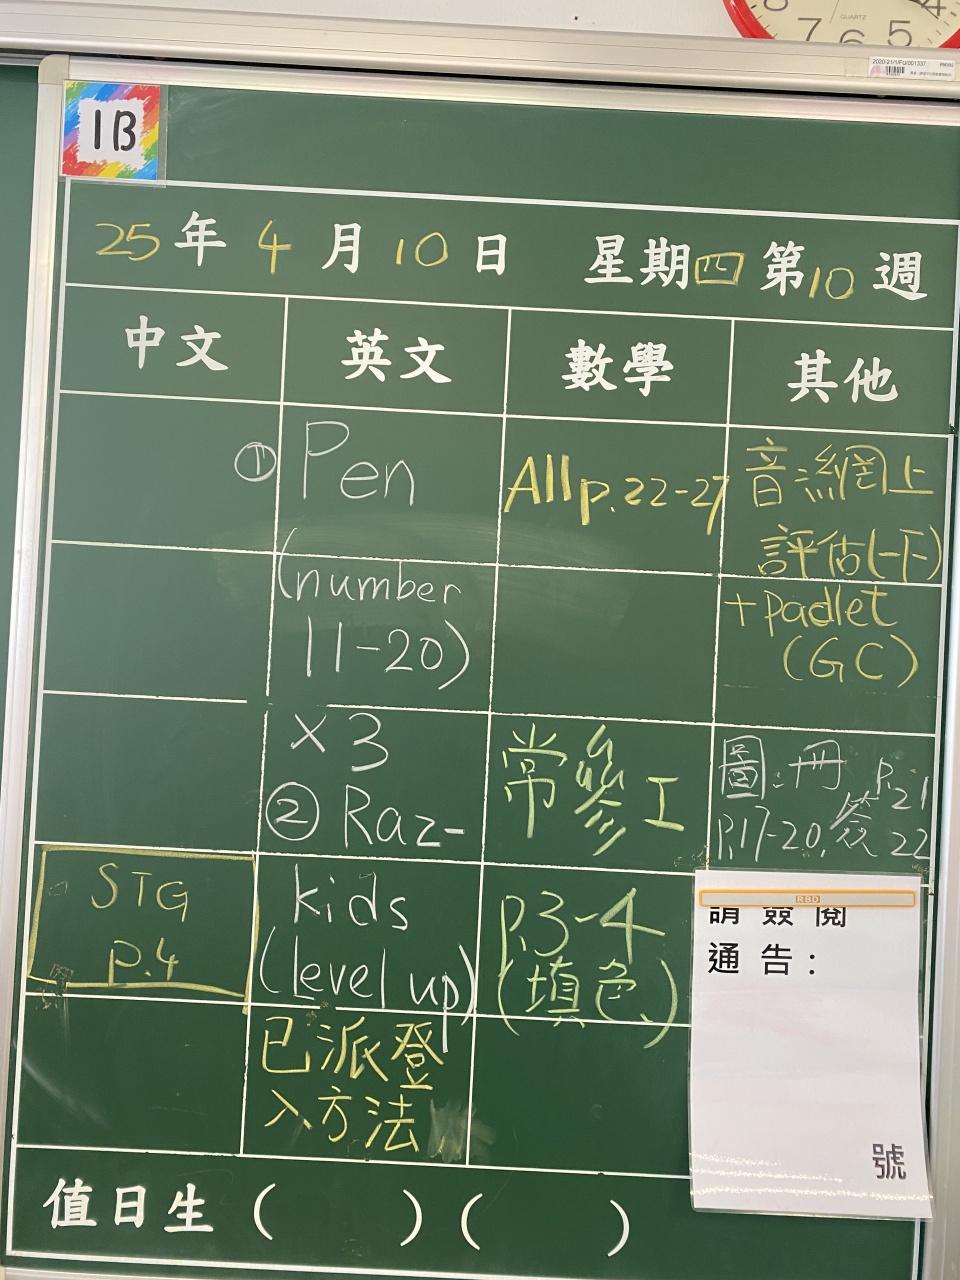 8 7 6 5 4
QUARTZ
2020-21/1/FU/001337
1B
25年4月10日 星期四第10週
中文 英文 數學 其他
① Pen
(number
11-20)
×3
② Raz-
kids
(Level up)
已派登
入方法
STG
p.4
All p.22-27
常參工
p.3-4
(填色)
音:網上
評估(一下)
+padlet
(GC)
圖:冊 P.21
P.17-20, 簽 22
RBD
請簽閱
通告:
號
值日生 ( ) ( )